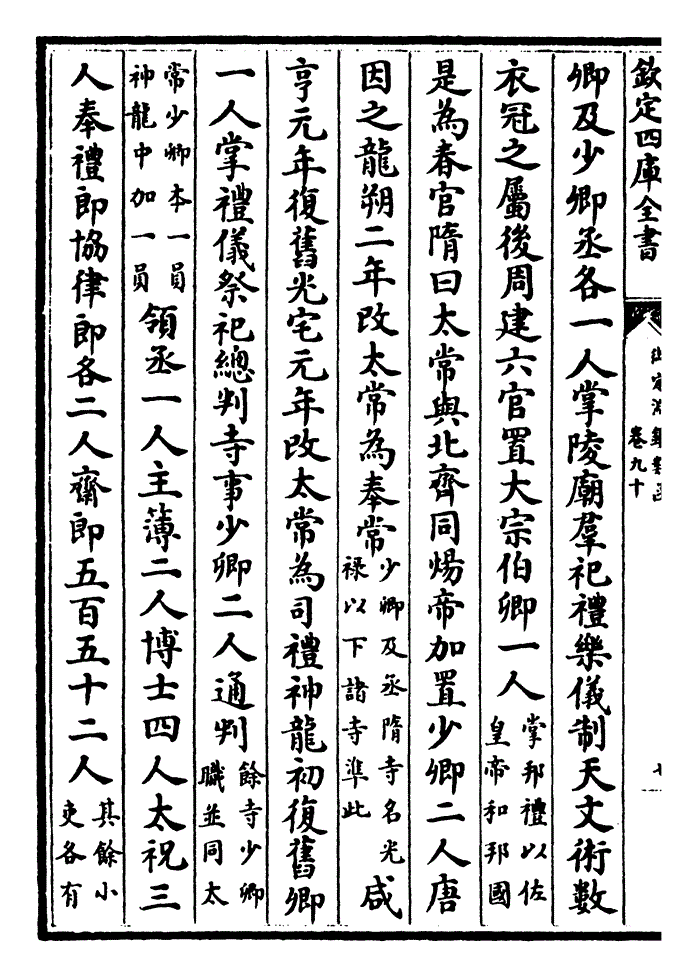 欽定四庫全書
卷九十
卿及少卿丞各一人掌陵廟羣祀禮樂儀制天文術數
衣冠之屬後周建六官置大宗伯卿一人掌邦禮以佐皇帝和邦國
是為春官隋曰太常與北齊同煬帝加置少卿二人唐
因之龍朔二年改太常為奉常少卿及丞隋寺名光禄以下諸寺準此咸
亨元年復舊光宅元年改太常為司禮神龍初復舊卿
一人掌禮儀祭祀總判寺事少卿二人通判餘寺少卿職並同太
常少卿本一員神龍中加一員領丞一人主薄二人博士四人太祝三
人奉禮郎協律郎各二人齋郎五百五十二人其餘小吏各有